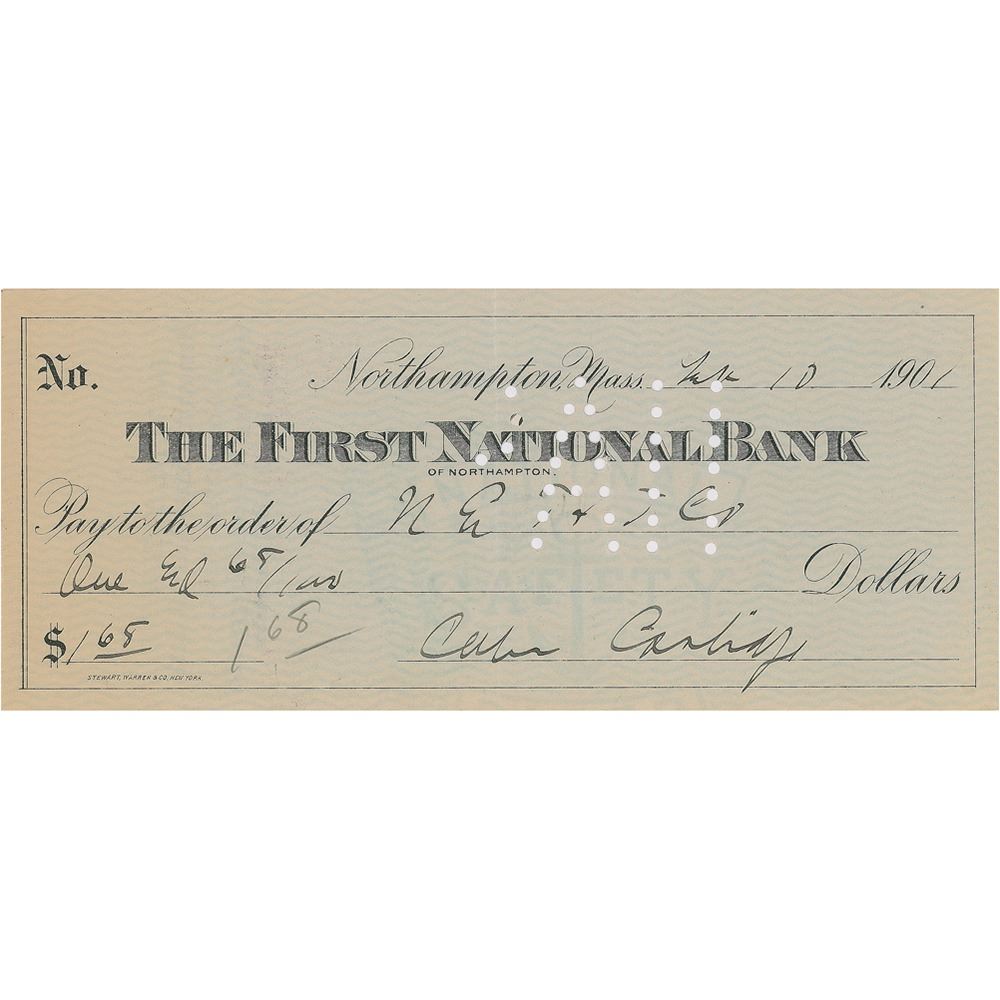 No. Northampton, Mass. 10 1901
THE FIRST NATIONAL BANK
OF NORTHAMPTON.
Pay to the order of N E T & T Co
One 68/100 Dollars
$1 68 1 68 Calvin Coolidge
STEWART, WARREN & CO. NEW YORK.